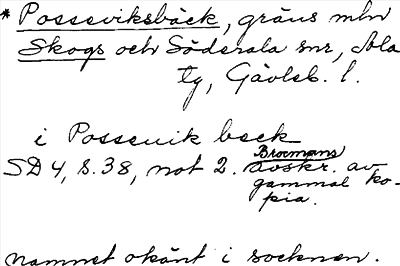 * Posseviksbäck, gräns mln
Skogs och Söderala snr, Ala
tg, Gävleb. l.
i Possevik beck
SD 4, s. 38, not 2. Brocmans avskr. av
gammal ko-
pia.
namnet okänt i socknen.